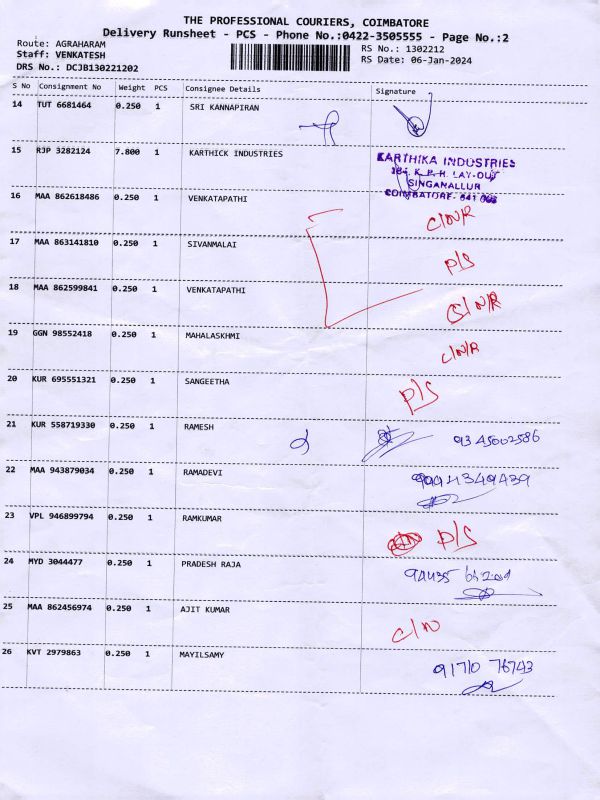 THE PROFESSIONAL COURIERS, COIMBATORE
Delivery Runsheet - PCS - Phone No.:0422-3505555 - Page No.:2
Route: AGRAHARAM
Staff: VENKATESH
DRS No.: DCJB130221202
RS No.: 1302212
RS Date: 06-Jan-2024
S No Consignment No Weight PCS Consignee Details Signature
14 TUT 6681464 0.250 1 SRI KANNAPIRAN
15 RJP 3282124 7.800 1 KARTHICK INDUSTRIES
KARTHIKA INDUSTRIES
K. P. H. LAY-OUT
SINGANALLUR
COIMBATORE- 641
16 MAA 862618486 0.250 1 VENKATAPATHI C/N/R
17 MAA 863141810 0.250 1 SIVANMALAI P/S
18 MAA 862599841 0.250 1 VENKATAPATHI C/N/R
19 GGN 98552418 0.250 1 MAHALASKHMI C/N/R
20 KUR 695551321 0.250 1 SANGEETHA P/S
21 KUR 558719330 0.250 1 RAMESH 9345002586
22 MAA 943879034 0.250 1 RAMADEVI
23 VPL 946899794 0.250 1 RAMKUMAR P/S
24 MYD 3044477 0.250 1 PRADESH RAJA
25 MAA 862456974 0.250 1 AJIT KUMAR C/N
26 KVT 2979863 0.250 1 MAYILSAMY 91710 76743